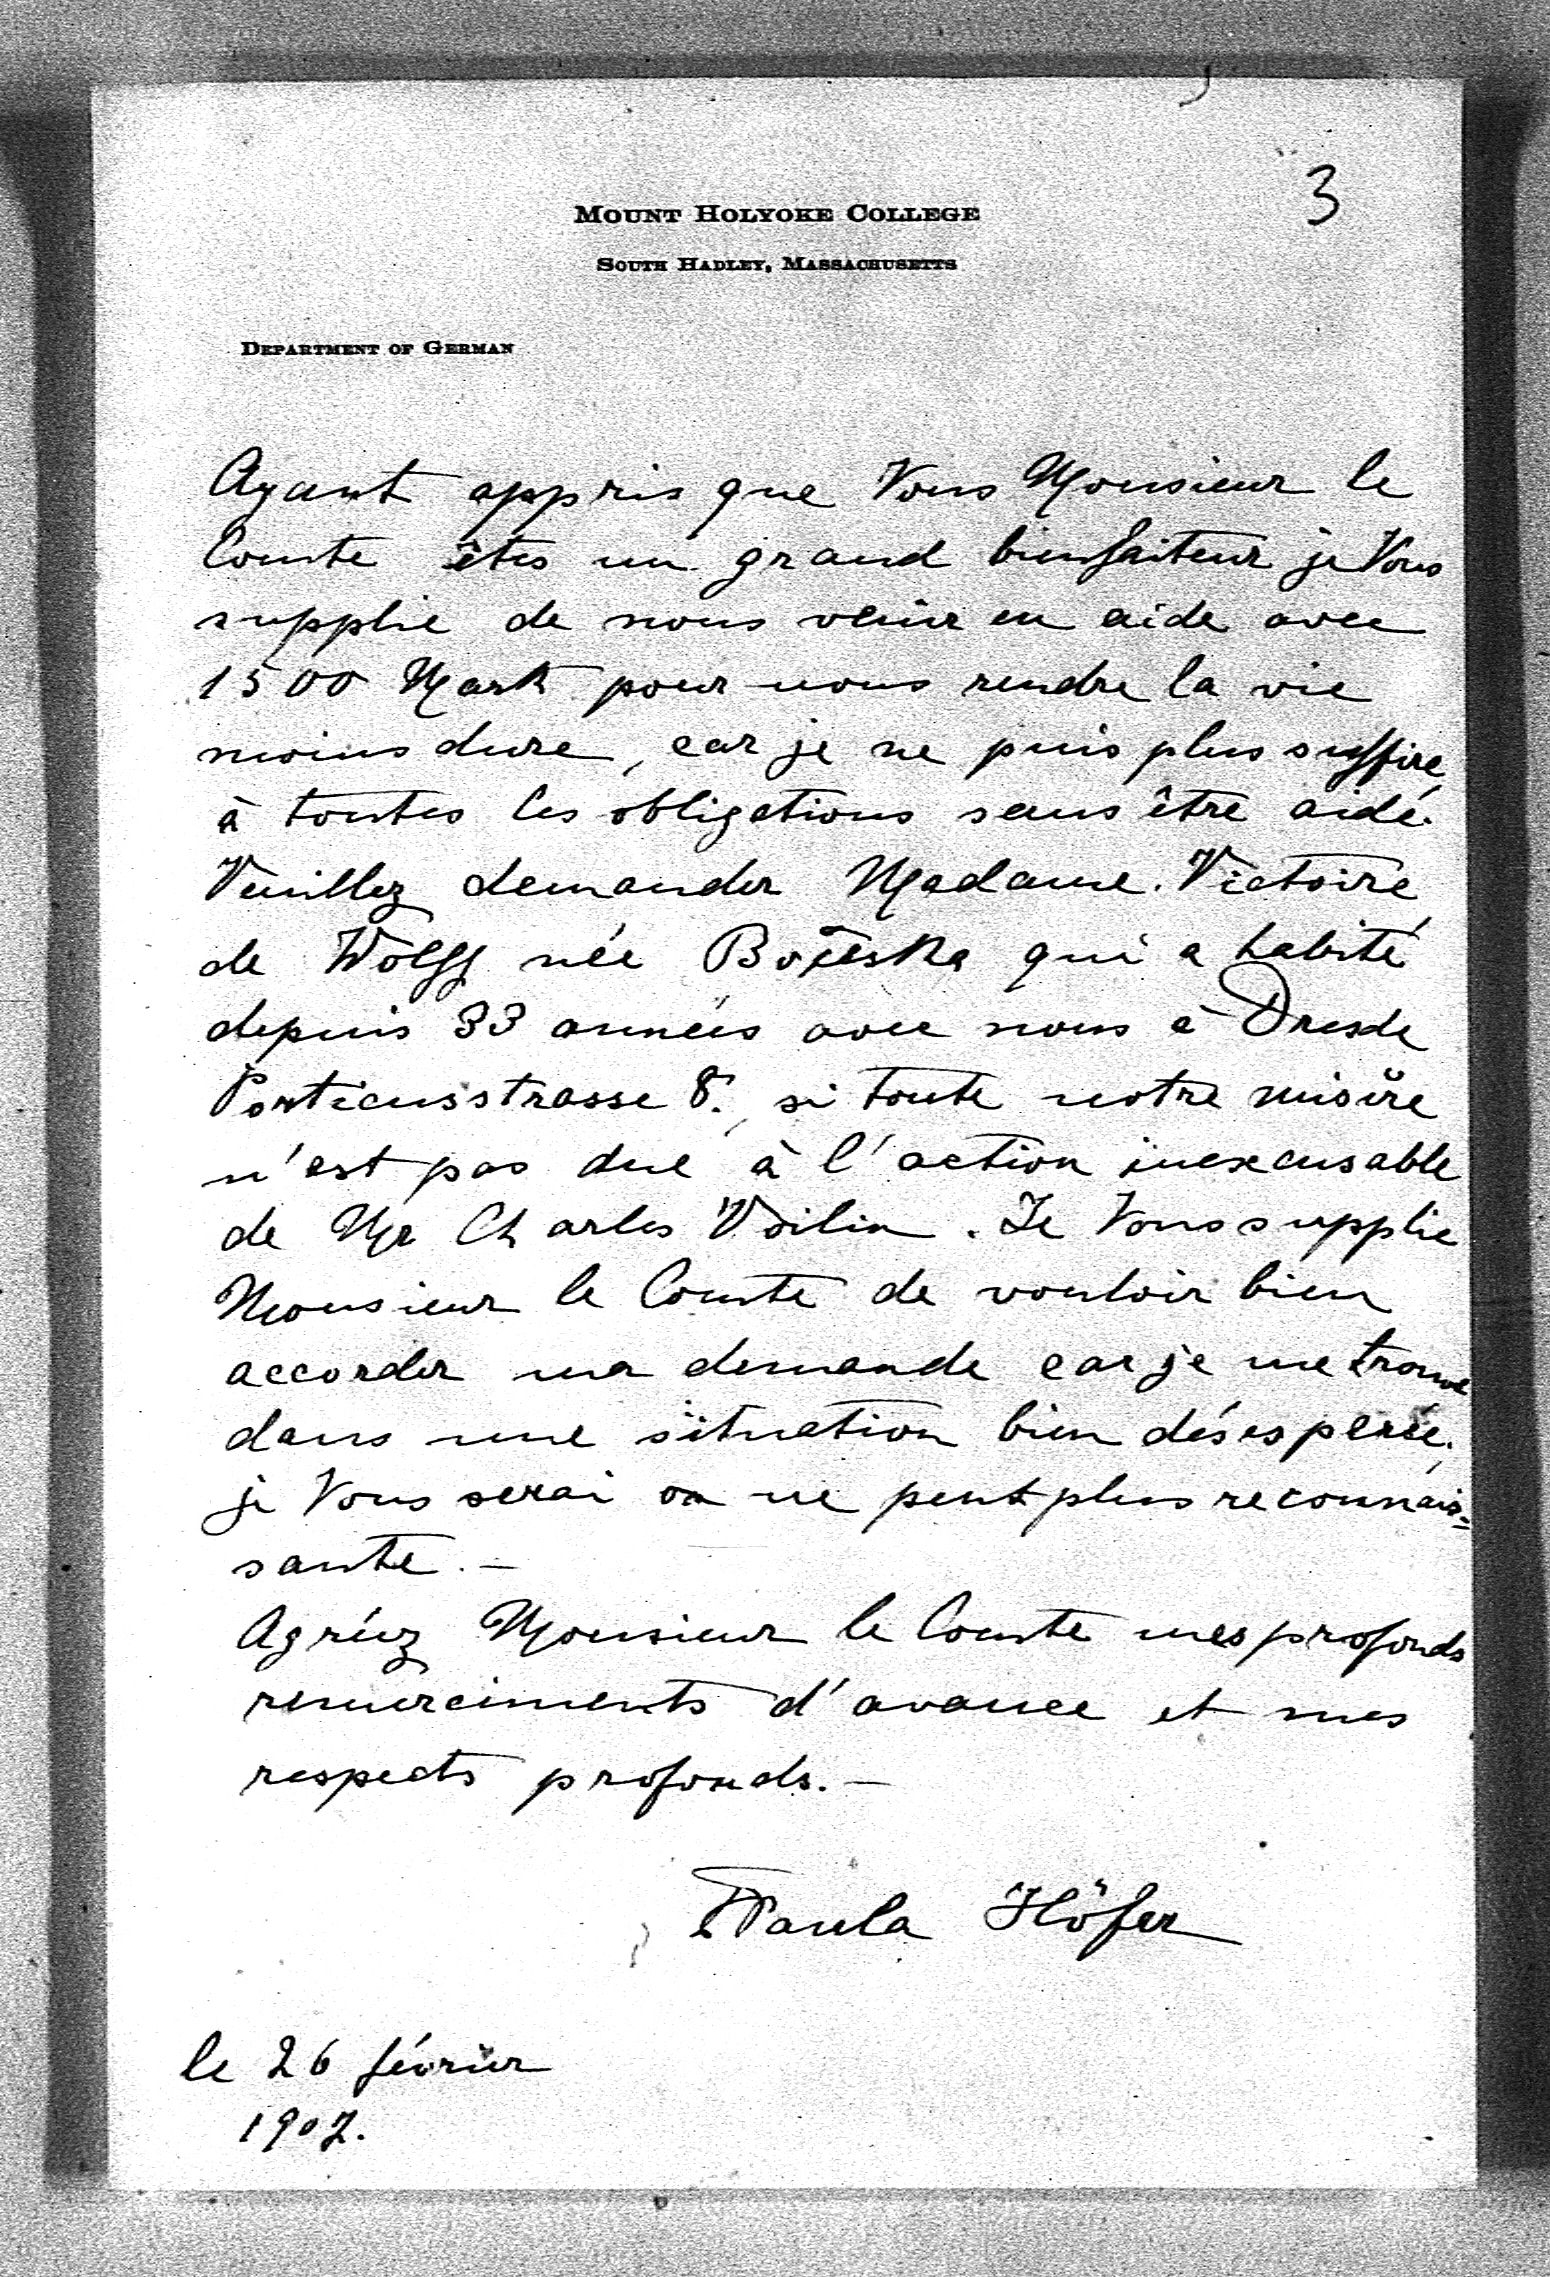 3
MOUNT HOLYOKE COLLEGE
SOUTH HADLEY, MASSACHUSETTS
DEPARTMENT OF GERMAN
Ayant appris que Vous Monsieur le
Comte êtes un grand bienfaiteur je Vous
supplie de nous venir en aide avec
1500 Mark pour nous rendre la vie
moins dure, car je ne puis plus suffire
à toutes les obligations sans être aidé.
Veuillez demander Madame Victoire
de Wolff née qui a habité
depuis 33 années avec nous à Dresde
Porticusstrasse 8., si toute notre misère
n'est pas due à l'action inexcusable
de Mr Charles Voilin. Je Vous supplie
Monsieur le Comte de vouloir bien
accorder ma demande car je me trouve
dans une situation bien désesperée,
je Vous serai on ne peut plus reconnais=
sante.—
Agréez Monsieur le Comte mes profonds
remerciments d'avance et mes
respects profonds.—
Paula Höfer
le 26 février
1907.